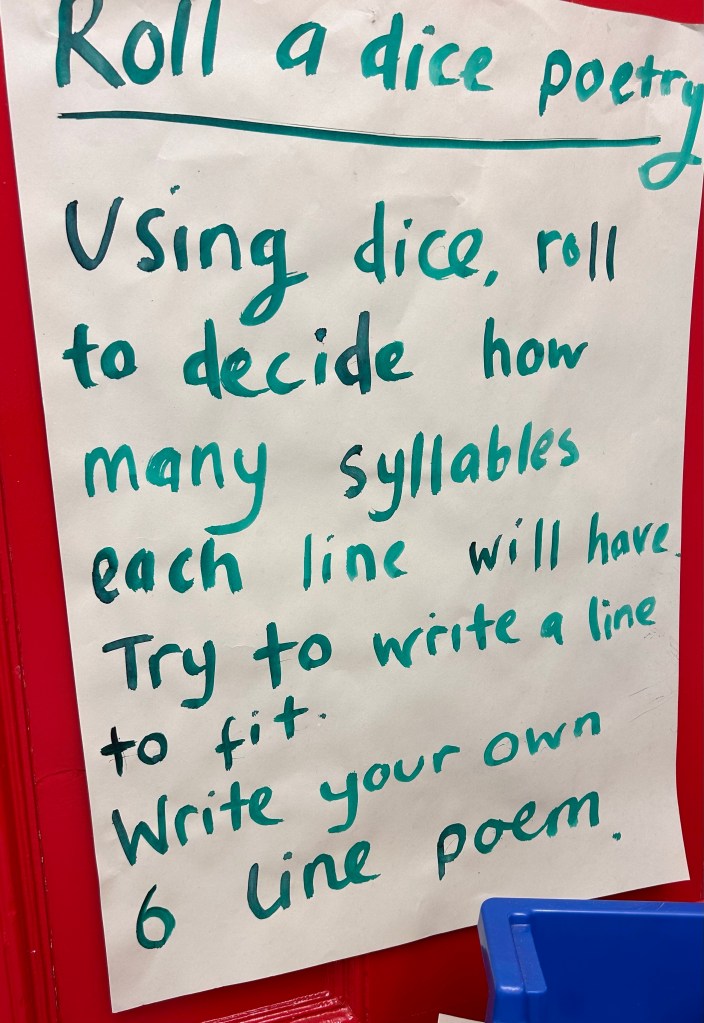 Roll a dice poetry
Using dice, roll
to decide how
many syllables
each line will have.
Try to write a line
to fit.
Write your own
6 line poem.